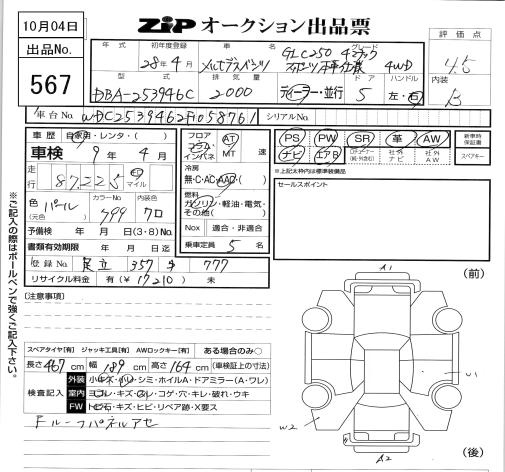 10月04日
ZIP オークション出品票
出品No.
567
評価点
4.5
内装
B
年式
初年度登録
28年4月
車名
メルセデスベンツ
グレード
GLC250 4マチック
スポーツ 本革仕様 4WD
型式
DBA-253946C
排気量
2000
ディーラー・並行
ドア
5
ハンドル
左・右
車台No. WDC2539462F058761
シリアルNo.
車歴 自家用・レンタ・( )
車検 9年 4月
走行 87225 km マイル
色(元色) パール
カラーNo. 799
内装色 クロ
予備検 年 月 日(3・8)No.
書類有効期限 年 月 日迄
登録No. 足立 357 777
リサイクル料金 有(¥17210) 未
フロア
フロア コラム インパネ
AT
MT 速
冷房
無・C・AC・AAC・( )
燃料
ガソリン・軽油・電気・
その他( )
Nox 適合・非適合
乗車定員 5 名
PS PW SR 革 AW
ナビ エアB 社外ナビ 社外AW
新車時保証書
スペアキー
*上記太枠内は標準装備品
セールスポイント
※ご記入の際はボールペンで強くご記入下さい。
[注意事項]
スペアタイヤ[有] ジャッキ工具[有] AWロックキー[有] ある場合のみ○
長さ 467 cm 幅 189 cm 高さ 164 cm (車検証上の寸法)
検査記入
外装 小キズ・小凹・シミ・ホイルA・ドアミラー(A・ワレ)
室内 ヨゴレ・キズ・スレ・コゲ・穴・キレ・破れ・ウキ
FW トビ石・キズ・ヒビ・リペア跡・X要ス
Fルーフパネルアセ
A1
(前)
U1
W2
A2
(後)